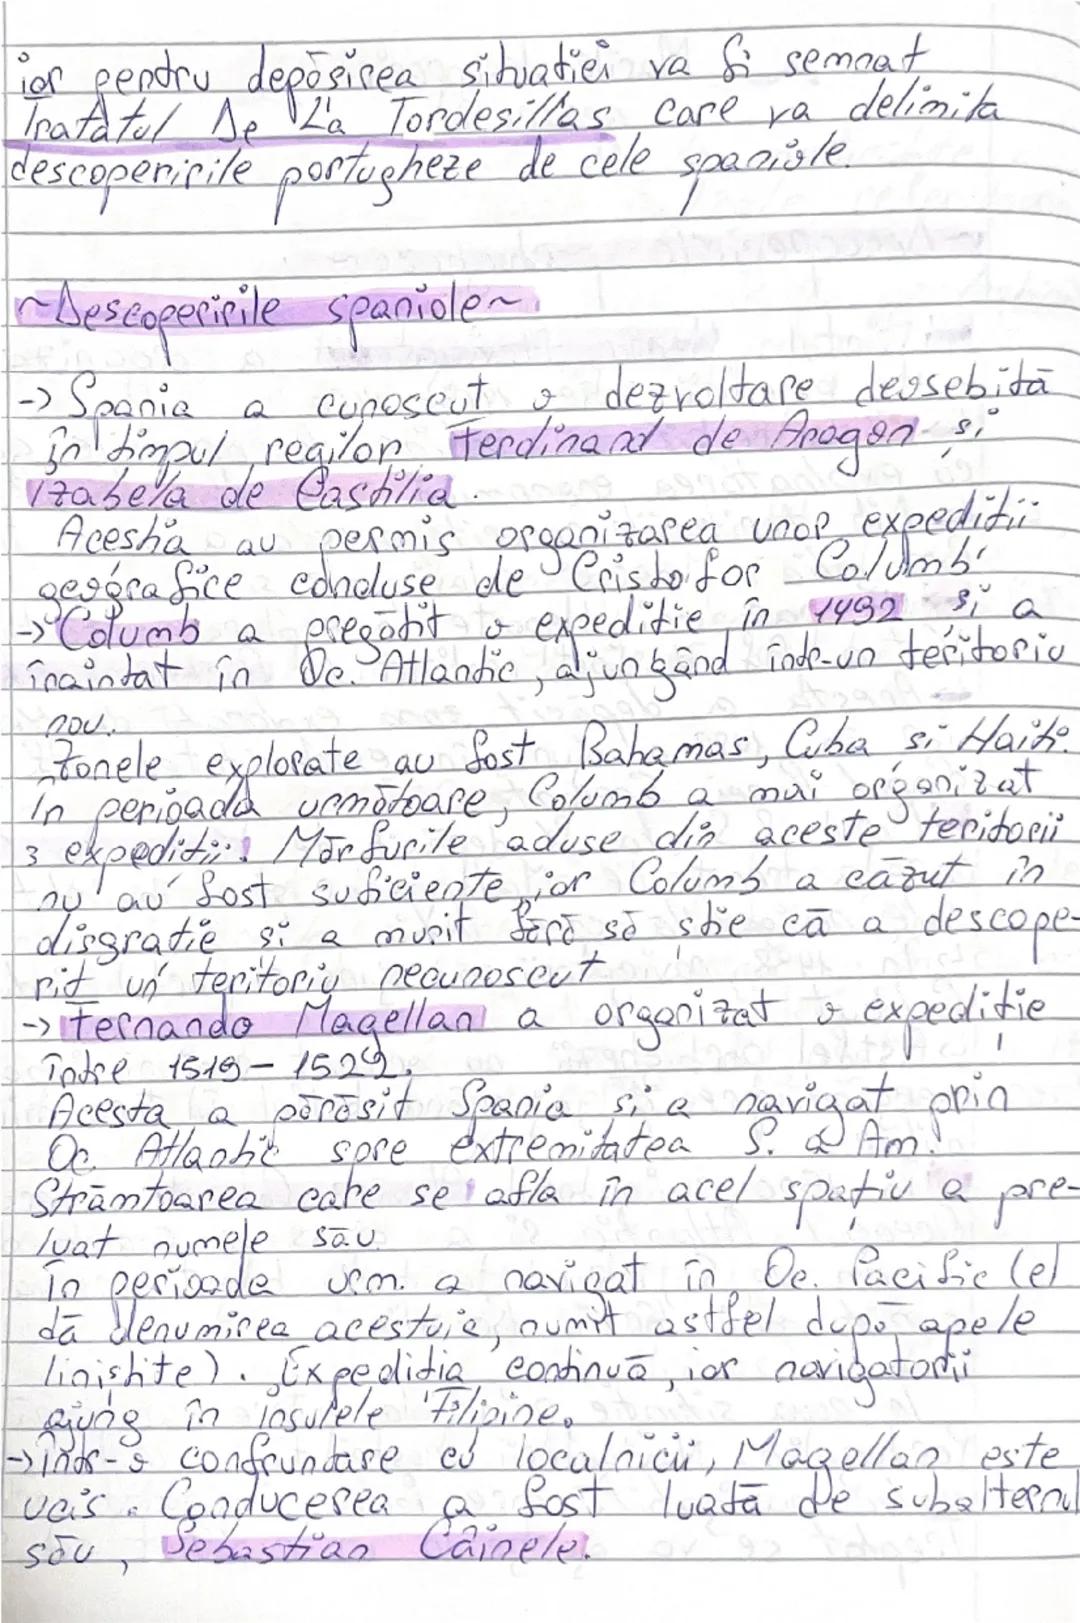 iar pentru depăsirea situatiei va fi semnat
Tratatul De La Tordesillas care va delimita
descoperirile portugheze de cele spaniole.
~Descoperirile spaniole~
-> Spania a cunoscut o dezvoltare deosebită
în timpul regilor Ferdinand de Aragon și
Izabela de Castilia.
Acestia au permis organizarea unor expeditii
geografice conduse de Cristofor Columb
-> Columb a pregătit o expeditie în 1492 și a
înaintat în Oc. Atlantic, ajungând într-un teritoriu
nou.
Zonele explorate au fost Bahamas, Cuba și Haiti.
În perioada următoare, Columb a mai organizat
3 expeditii. Mărfurile aduse din aceste teritorii
nu au fost suficiente, iar Columb a căzut în
disgratie și a murit fără să stie că a descope-
rit un teritoriu necunoscut
-> Fernando Magellan a organizat o expeditie
între 1519-1522.
Acesta a părăsit Spania și a navigat prin
Oc. Atlantic spre extremitatea S. a Am.
Strâmtoarea care se afla în acel spațiu a pre-
luat numele său.
În perioada urm. a navigat în Oc. Pacific (el
dă denumirea acestuia, numit astfel după apele
linistite). Expeditia continuă, iar navigatorii
ajung în insulele Filipine.
-> într-o confruntare cu localnicii, Magellan este
ucis. Conducerea a fost luată de subalternul
său, Sebastian Câinele.